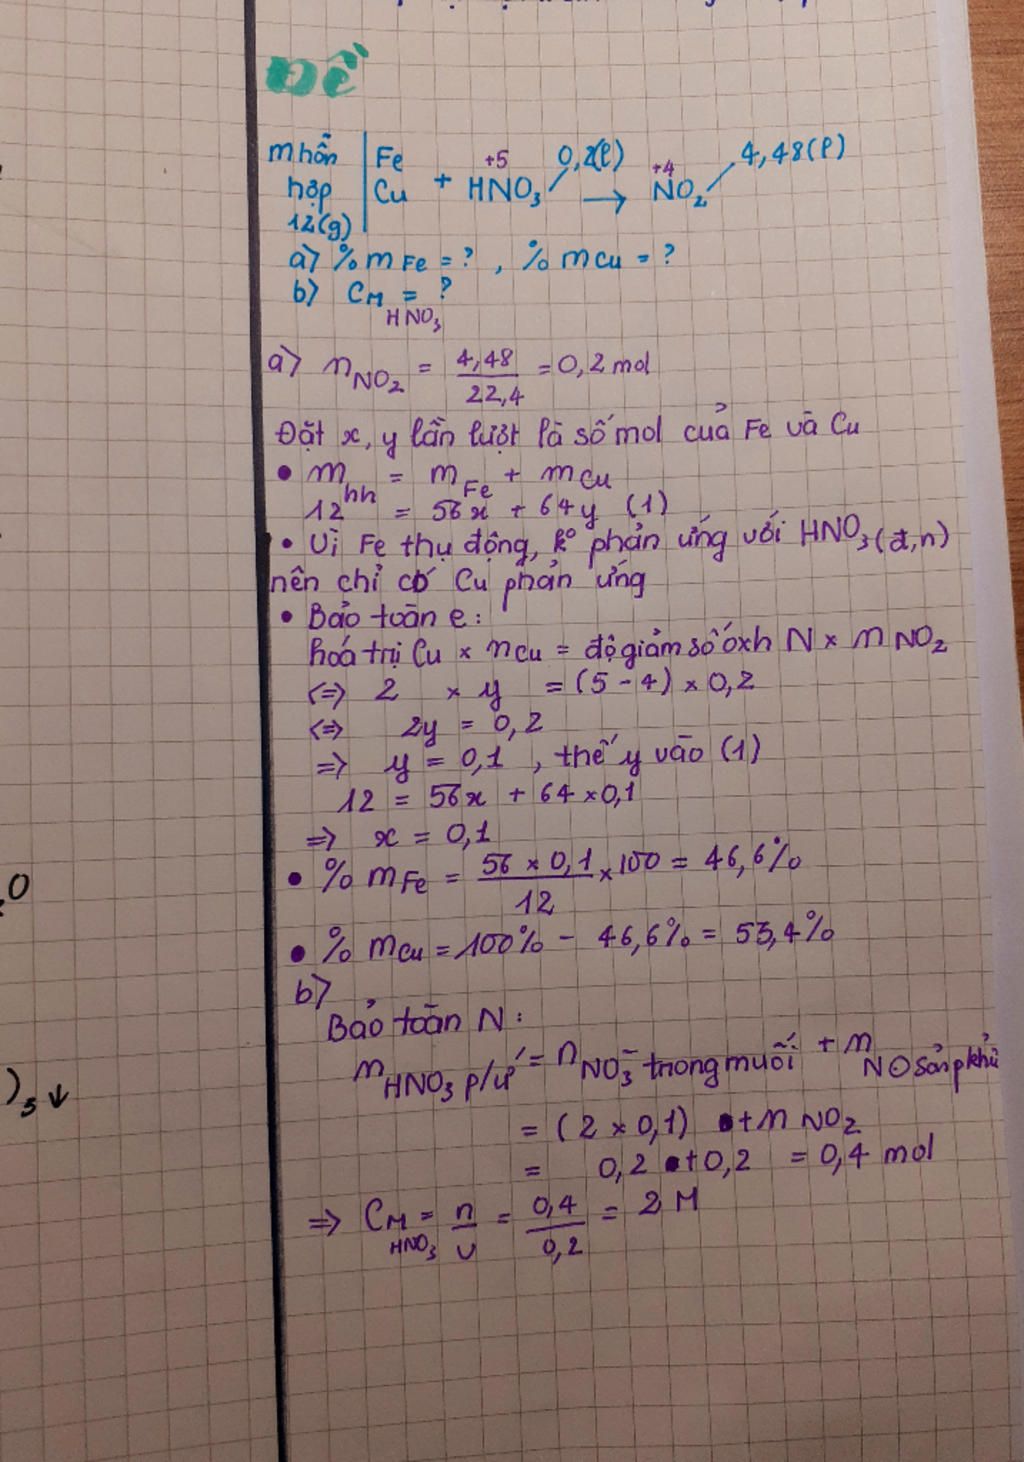 Đề
m hỗn hợp 12(g) | Fe Cu + HNO₃ 0,2(l) → NO₂ 4,48(l)
+5 +4
a) % m Fe = ? , % m Cu = ?
b) CM HNO₃ = ?
a) n NO₂ = 4,48/22,4 = 0,2 mol
Đặt x, y lần lượt là số mol của Fe và Cu
• m hh = m Fe + m Cu
12 = 56x + 64y (1)
• Vì Fe thụ động, k° phản ứng với HNO₃ (đ,n)
nên chỉ có Cu phản ứng
• Bảo toàn e:
hoá trị Cu × n Cu = độ giảm số oxh N × n NO₂
<=> 2 × y = (5 - 4) × 0,2
<=> 2y = 0,2
=> y = 0,1 , thế y vào (1)
12 = 56x + 64 × 0,1
=> x = 0,1
• % m Fe = 56 × 0,1/12 × 100 = 46,6%
• % m Cu = 100% - 46,6% = 53,4%
b)
Bảo toàn N:
n HNO₃ p/ứ = n NO₃⁻ trong muối + n NO sản p khử
= (2 × 0,1) + n NO₂
= 0,2 + 0,2 = 0,4 mol
=> CM HNO₃ = n/v = 0,4/0,2 = 2 M
O
)₃ ↓